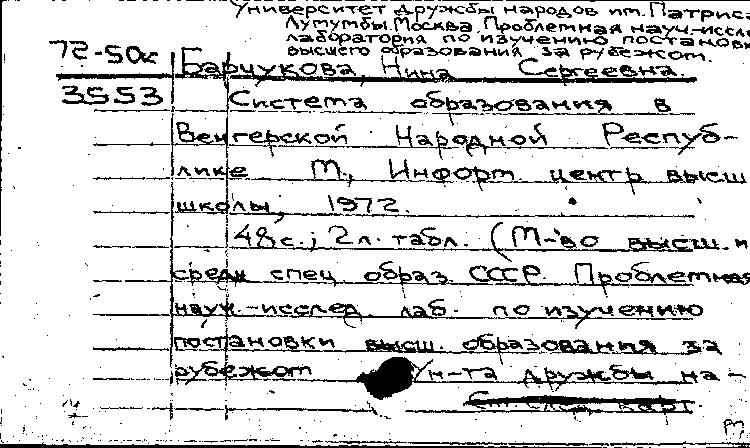 Университет дружбы народов им. Патриса
Лумумбы. Москва. Проблемная науч.-иссле
лаборатория по изучению постановк
высшего образования за рубежом.
72-50к Барчукова, Нина Сергеевна.
3553 Система образования в
Венгерской Народной Респуб-
лике М., Информ. центр высш
школы, 1972.
48 с.; 2 л. табл. (М-во высш. и
средн спец образ. СССР. Проблемная
науч.-исслед. лаб. по изучению
постановки высш. образования за
рубежом Ун-та дружбы на-
См. след. карт.